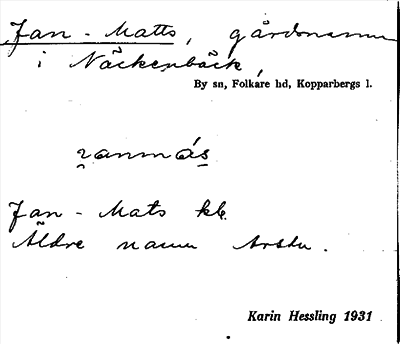 Jan-Matts, gårdsnamn
i Näckenbäck,
By sn, Folkare hd, Kopparbergs l.
ɿanmás
Jan-Mats kb.
Äldre namn
Karin Hessling 1931